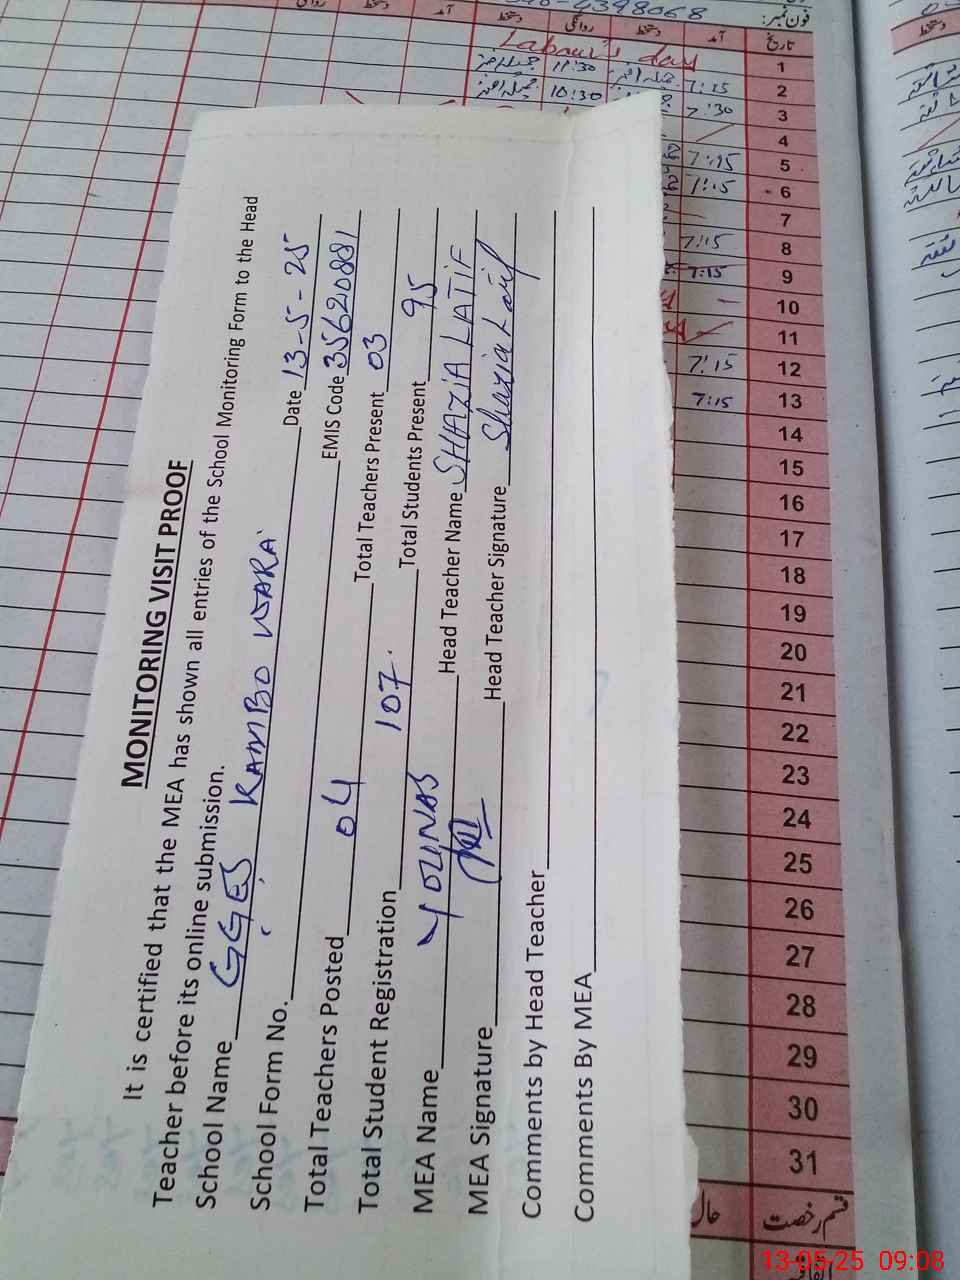 MONITORING VISIT PROOF
It is certified that the MEA has shown all entries of the School Monitoring Form to the Head
Teacher before its online submission.
School Name GGES KAMBO WARA Date 13-5-25
School Form No. EMIS Code 35620881
Total Teachers Posted 04 Total Teachers Present 03
Total Student Registration 107 Total Students Present 95
MEA Name YOUNAS Head Teacher Name SHAZIA LATIF
MEA Signature Head Teacher Signature Shazia Latif
Comments by Head Teacher
Comments By MEA
فون نمبر: 4398068
تاریخ آمد دستخط روانگی دستخط آمد دستخط روانگی
1 Labour's day
2 7:15 11:30
3 7:30 10:30
4
5 7:15
6 7:15
7
8 7:15
9 7:15
10
11
12 7:15
13 7:15
14
15
16
17
18
19
20
21
22
23
24
25
26
27
28
29
30
31
قسم رخصت
13-05-25 09:08